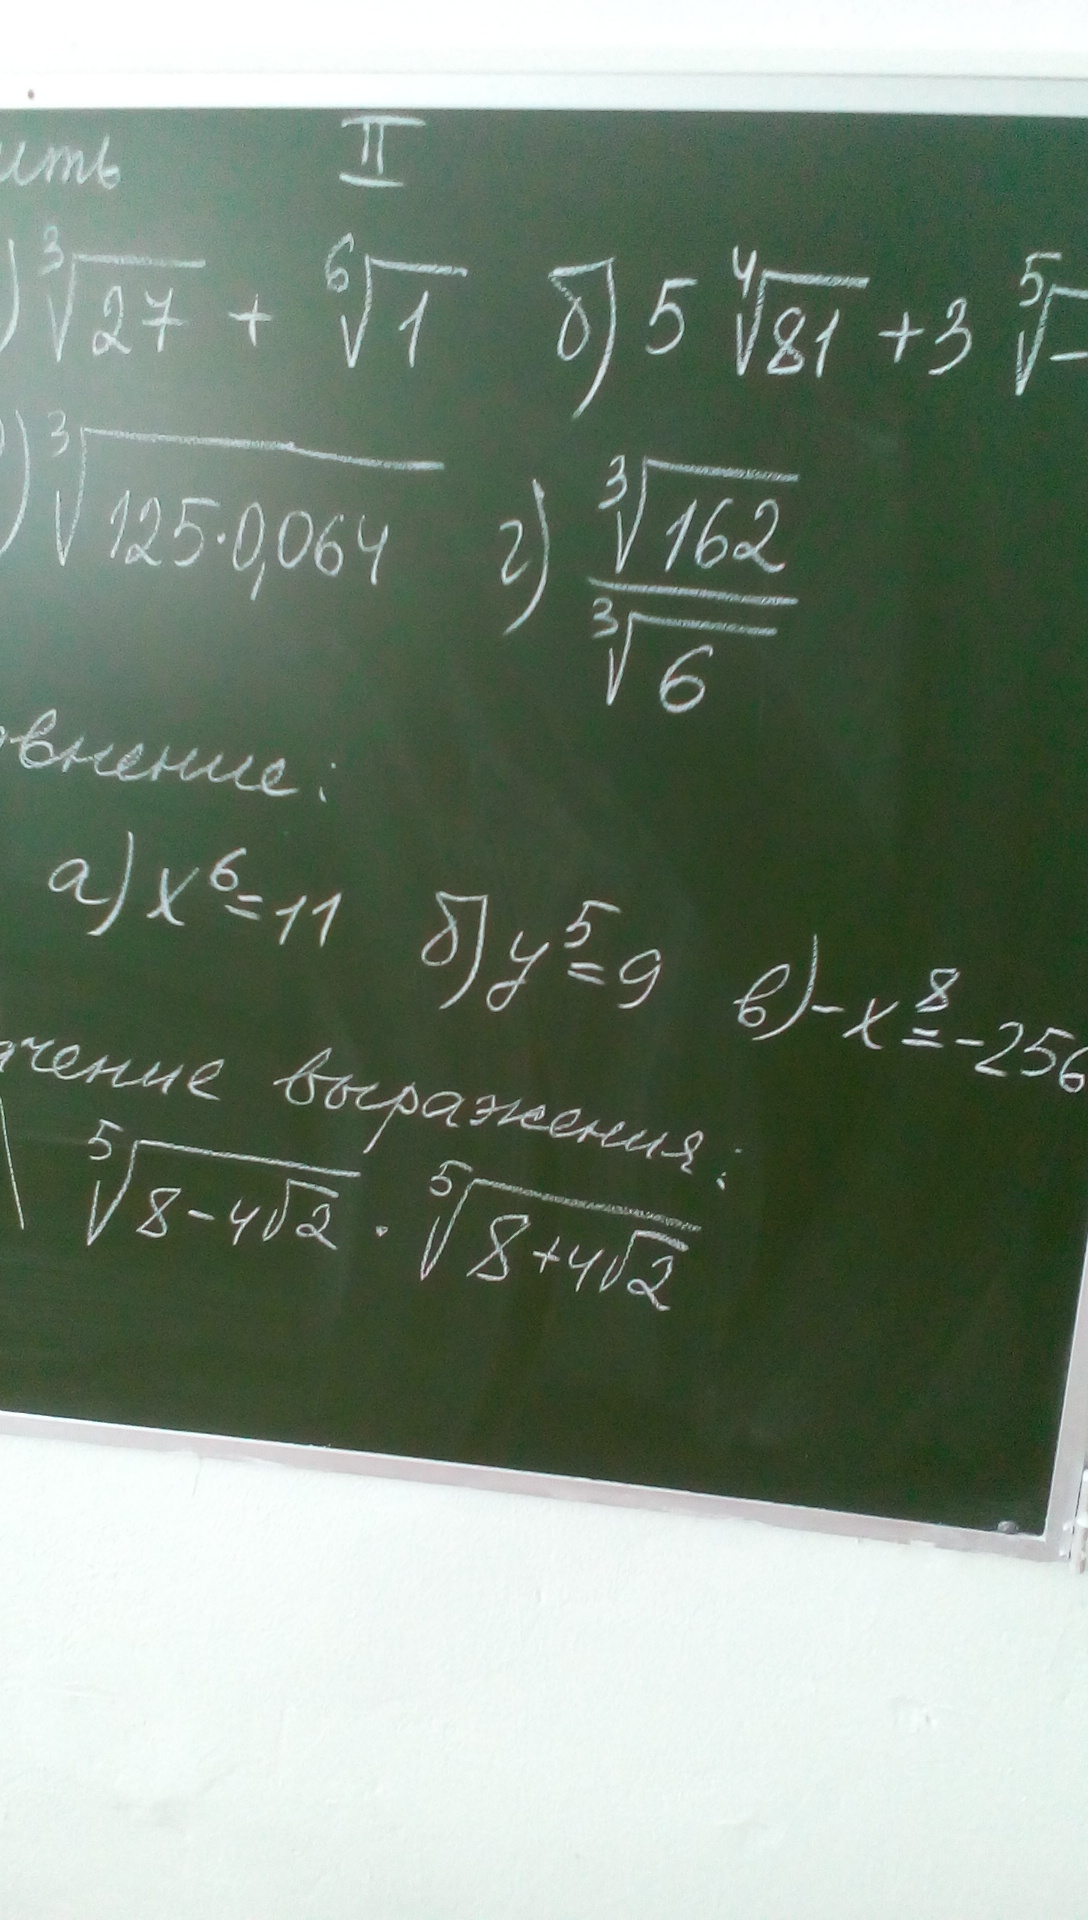 ить II
) ∛27 + ⁶√1 б) 5 ⁴√81 + 3 ⁵√-
) ∛(125·0,064) г) ∛162 / ∛6
внение:
а) x⁶=11 б) y⁵=9 в) -x⁸=-256
чение выражения:
⁵√(8-4√2) · ⁵√(8+4√2)